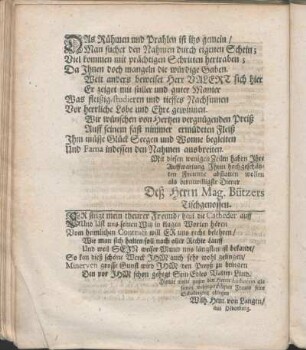 DAs Rühmen und Prahlen ist itzo gemein /
Man suchet den Nahmen durch eigenen Schein;
Viel kommen mit prächtigen Schritten hertraben;
Da Ihnen doch mangeln die würdige Gaben.
Weit anders beweiset Herr VALERT sich hier
Er zeiget mit stiller und guter Manier
Was fleißig studieren und tieffes Nachsinnen
Vor herrliche Lobe und Ehre gewinnen.
Wir wünschen von Hertzen vergnügenden Preiß
Auff seinem fast nimmer ermüdeten Fleiß
Ihm müße Glück Seegen und Wonne begleiten
Und Fama indessen den Nahmen ausbreiten.
Mit diesen wenigen Zeilen haben Ihre
Auffwartung Ihrem hochgeschätz-
ten Freunde abstatten wollen
als
Deß Herrn Mag. Bützers
Tischgenossen.
ER steigt mein theurer Freund / heut die Catheder auff
und was SEIN weiser Mund uns längsten ist bekandt /
So kan dieß schöne Werck IHM auch sehr wohl gelingen /
Minerven grosse Gunst wird IHM den Preyß zu bringen
Den vor IHM schon gehegt Sein Edles Vatter-Land.
Wilh. Heinr. von Langen /
aus Oldenburg.